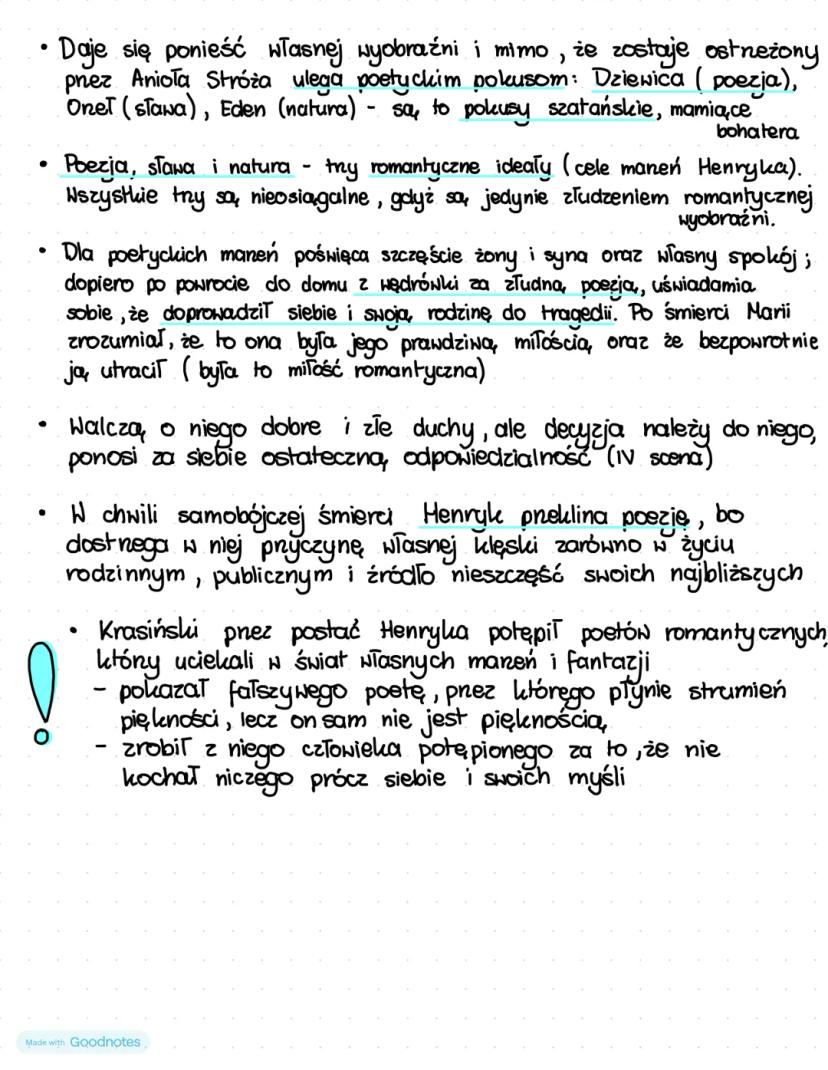 • Daje się ponieść własnej wyobraźni i mimo, że zostaje ostrzeżony
przez Anioła Stróża ulega poetyckim pokusom: Dziewica (poezja),
Orzeł (sława), Eden (natura) - są to pokusy szatańskie, mamiące
bohatera
• Poezja, sława i natura - trzy romantyczne ideały (cele marzeń Henryka).
Wszystkie trzy są nieosiągalne, gdyż są jedynie złudzeniem romantycznej
wyobraźni.
• Dla poetyckich marzeń poświęca szczęście żony i syna oraz własny spokój;
dopiero po powrocie do domu z wędrówki za złudną poezją, uświadamia
sobie, że doprowadził siebie i swoją rodzinę do tragedii. Po śmierci Marii
zrozumiał, że to ona była jego prawdziwą miłością oraz że bezpowrotnie
ją utracił (była to miłość romantyczna)
• Walczą o niego dobre i złe duchy, ale decyzja należy do niego,
ponosi za siebie ostateczną odpowiedzialność (IV scena)
• W chwili samobójczej śmierci Henryk przeklina poezję, bo
dostrzega w niej przyczynę własnej klęski zarówno w życiu
rodzinnym, publicznym i źródło nieszczęść swoich najbliższych
• Krasiński przez postać Henryka potępił poetów romantycznych,
którzy uciekali w świat własnych marzeń i fantazji
- pokazał fałszywego poetę, przez którego płynie strumień
piękności, lecz on sam nie jest pięknością
- zrobił z niego człowieka potępionego za to, że nie
kochał niczego prócz siebie i swoich myśli
Made with Goodnotes